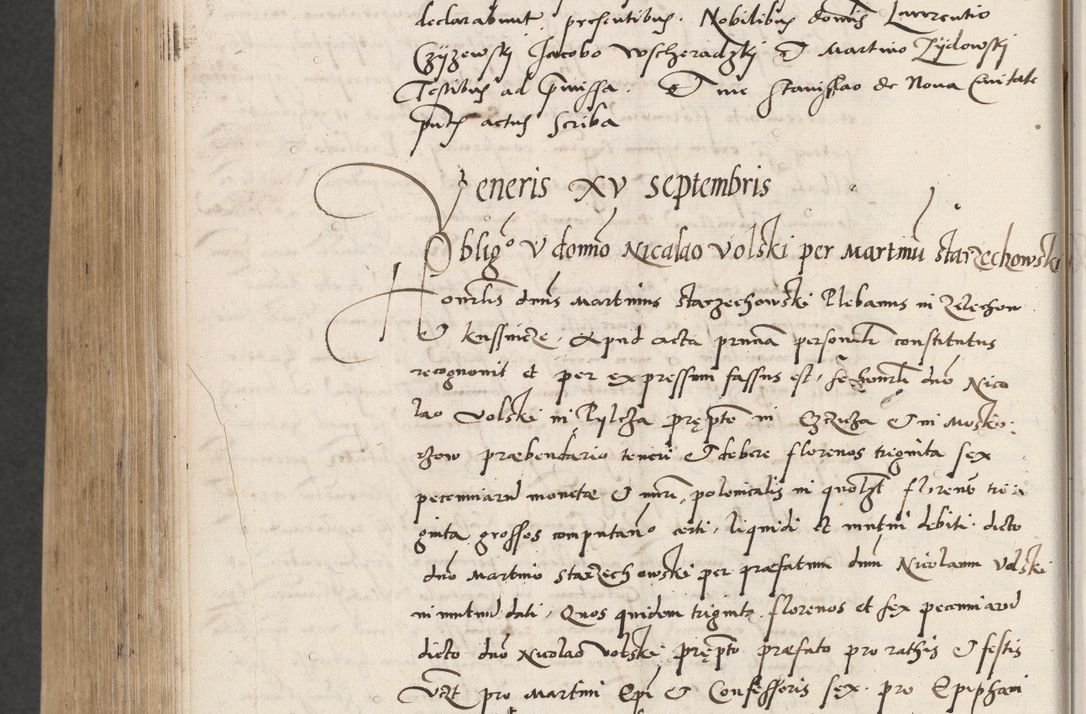 declarabunt presentibus. Nobilibus domis Laurentio
Czyzewski Jacobo Wscheradzki & Martino Zydowski
Testibus ad pmissa. & me Stanislao de Nova Civitate
pnts actus scriba
Veneris XV Septembris
Obligo V domno Nicalao Volski per Martinu Starzechowski
Honrlis dnus Martinus Starzechowski Plebanus in Zelechow
& . Apud acta prima personlr constitutus
recognovit et per expressum fassus est, se honrli dno Nico
lao Volski in Pylcza prepto in & in Mosko
rzow præbendario teneri & debere florenos triginta sex
pecuniaru monetæ & nuri, polonicalis in quolzt floreno tri
ginta grossos computano certi, liquidi et mutui debiti. dicto
dno Martino Starzechowski per præfatum dnm Nicolaum Volski
in mutuu dati, Quos quidem triginta florenos et sex pecuniaru
dicto dno Nicolao Volski prepto præfato pro rathis & festis
Vzt pro Martini Epi & Confessoris sex. pro Epiphani